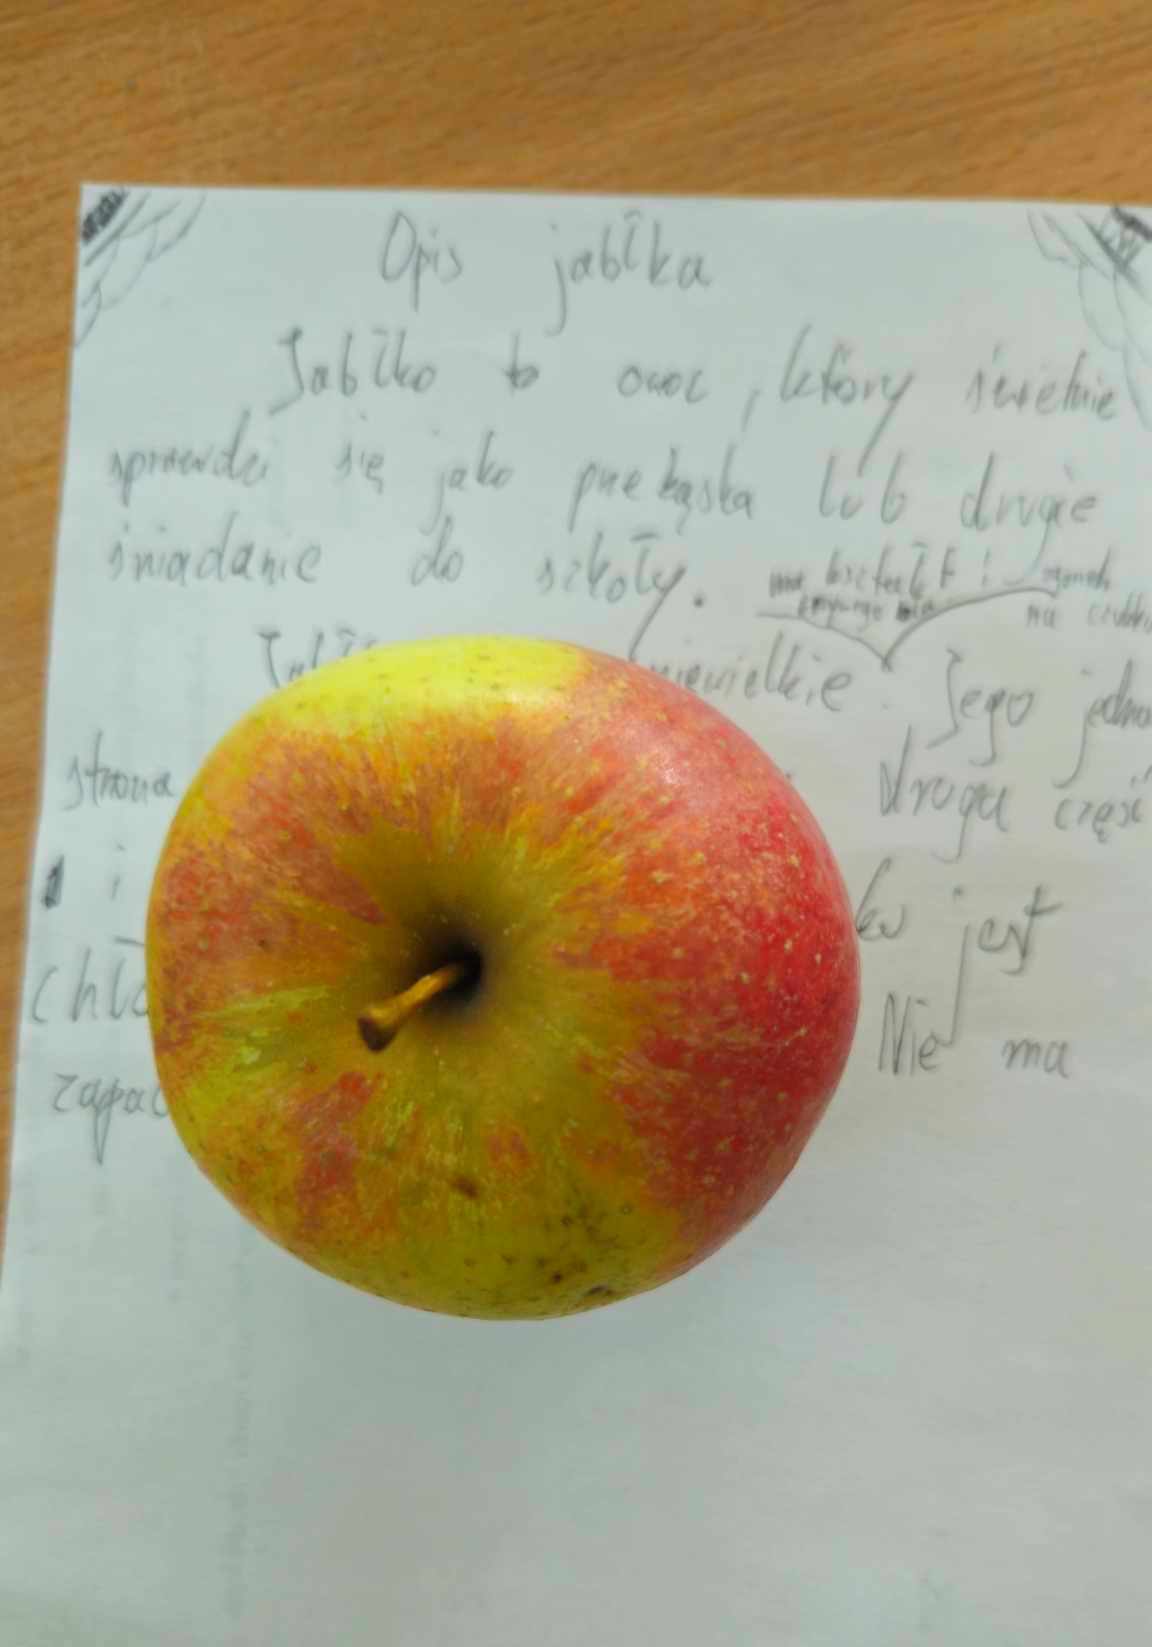 Opis jabłka
Jabłko to owoc, który świetnie
sprawdzi się jako przekąska lub drugie
śniadanie do szkoły.
ma kształt i ogonek
na czubku
niewielkie. Jego jedna
strona druga część
i jest
Nie ma